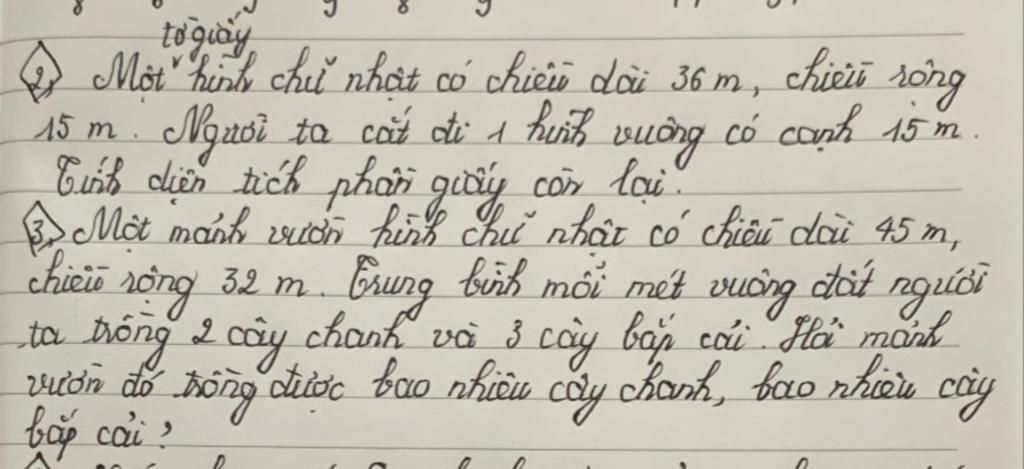 tờ giấy
2, Một hình chữ nhật có chiều dài 36 m, chiều rộng
15 m. Người ta cắt đi 1 hình vuông có cạnh 15 m.
Tính diện tích phần giấy còn lại.
3, Một mảnh vườn hình chữ nhật có chiều dài 45 m,
chiều rộng 32 m. Trung bình mỗi mét vuông đất người
ta trồng 2 cây chanh và 3 cây bắp cải. Hỏi mảnh
vườn đó trồng được bao nhiêu cây chanh, bao nhiêu cây
bắp cải?